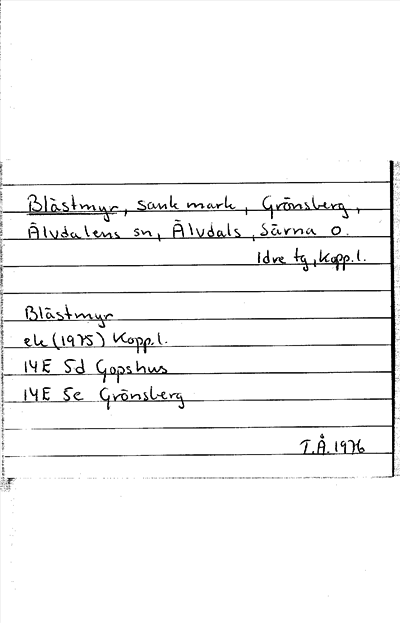 Blästmyr, sank mark, Grönsberg,
Älvdalens sn, Älvdals, Särna o.
Idre tg, Kopp.l.
Blästmyr
ek (1975) Kopp.l.
14E 5d Gopshus
14E 5e Grönsberg
T.Å. 1976